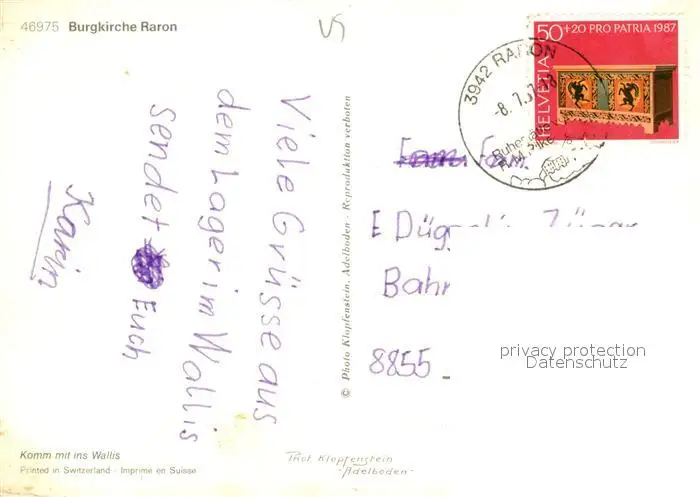 46975 Burgkirche Raron
Viele Grüsse aus
dem Lager im Wallis
sendet Euch
Karin
© Photo Klopfenstein, Adelboden - Reproduktion verboten
50+20 PRO PATRIA 1987
HELVETIA
3942 RARON
Fam.
Bahn
8855
privacy protection
Datenschutz
Komm mit ins Wallis
Printed in Switzerland - Imprimé en Suisse
Phot Klopfenstein
-Adelboden-